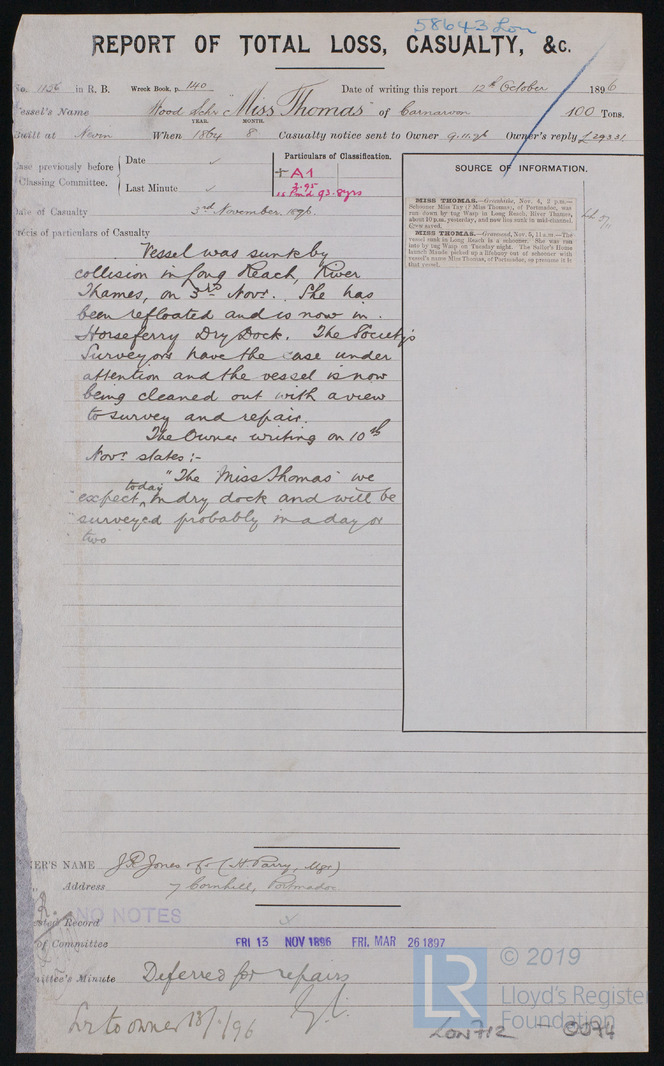 58643 Lon
REPORT OF TOTAL LOSS, CASUALTY, &c.
No. 1156 in R. B. Wreck Book, p. 140 Date of writing this report 12th October 1896
Vessel's Name Wood Schr "Miss Thomas" of Carnarvon 100 Tons.
YEAR. MONTH.
Built at Nevin When 1864 8 Casualty notice sent to Owner 9.11.96 Owner's reply
Case previously before Classing Committee.
Date
Last Minute
Particulars of Classification.
+A1
Date of Casualty 3rd November 1896.
Precis of particulars of Casualty
Vessel was sunk by
collision in Long Reach, River
Thames, on 3rd Novr. She has
been refloated and is now in
Horseferry Dry Dock. The Society's
Surveyors have the case under
attention and the vessel is now
being cleaned out with a view
to survey and repair.
The Owner writing on 10th
Novr states:-
"The 'Miss Thomas' we
today
"expect in dry dock and will be
"surveyed probably in a day or
"two
SOURCE OF INFORMATION.
MISS THOMAS.—Greenhithe, Nov. 4, 2 p.m.—
Schooner Miss Tay (? Miss Thomas), of Portmadoc, was
run down by tug Wasp in Long Reach, River Thames,
about 10 p.m. yesterday, and now lies sunk in mid-channel.
Crew saved.
MISS THOMAS.—Gravesend, Nov. 5, 11 a.m.—The
vessel sunk in Long Reach is a schooner. She was run
into by tug Wasp on Tuesday night. The Sailor's Home
launch Maude picked up a lifebuoy out of schooner with
vessel's name Miss Thomas, of Portmadoc, so presume it is
that vessel.
OWNER'S NAME J.R. Jones & o (H. Parry, Mgr)
Address 7 Cornhill, Portmadoc
Record NO NOTES
of Committee FRI 13 NOV 1896 FRI. MAR 26 1897
Committee's Minute Deferred for repairs
Lr to owner
LR
© 2019
Lloyd's Register
Foundation
LON712 - 0074